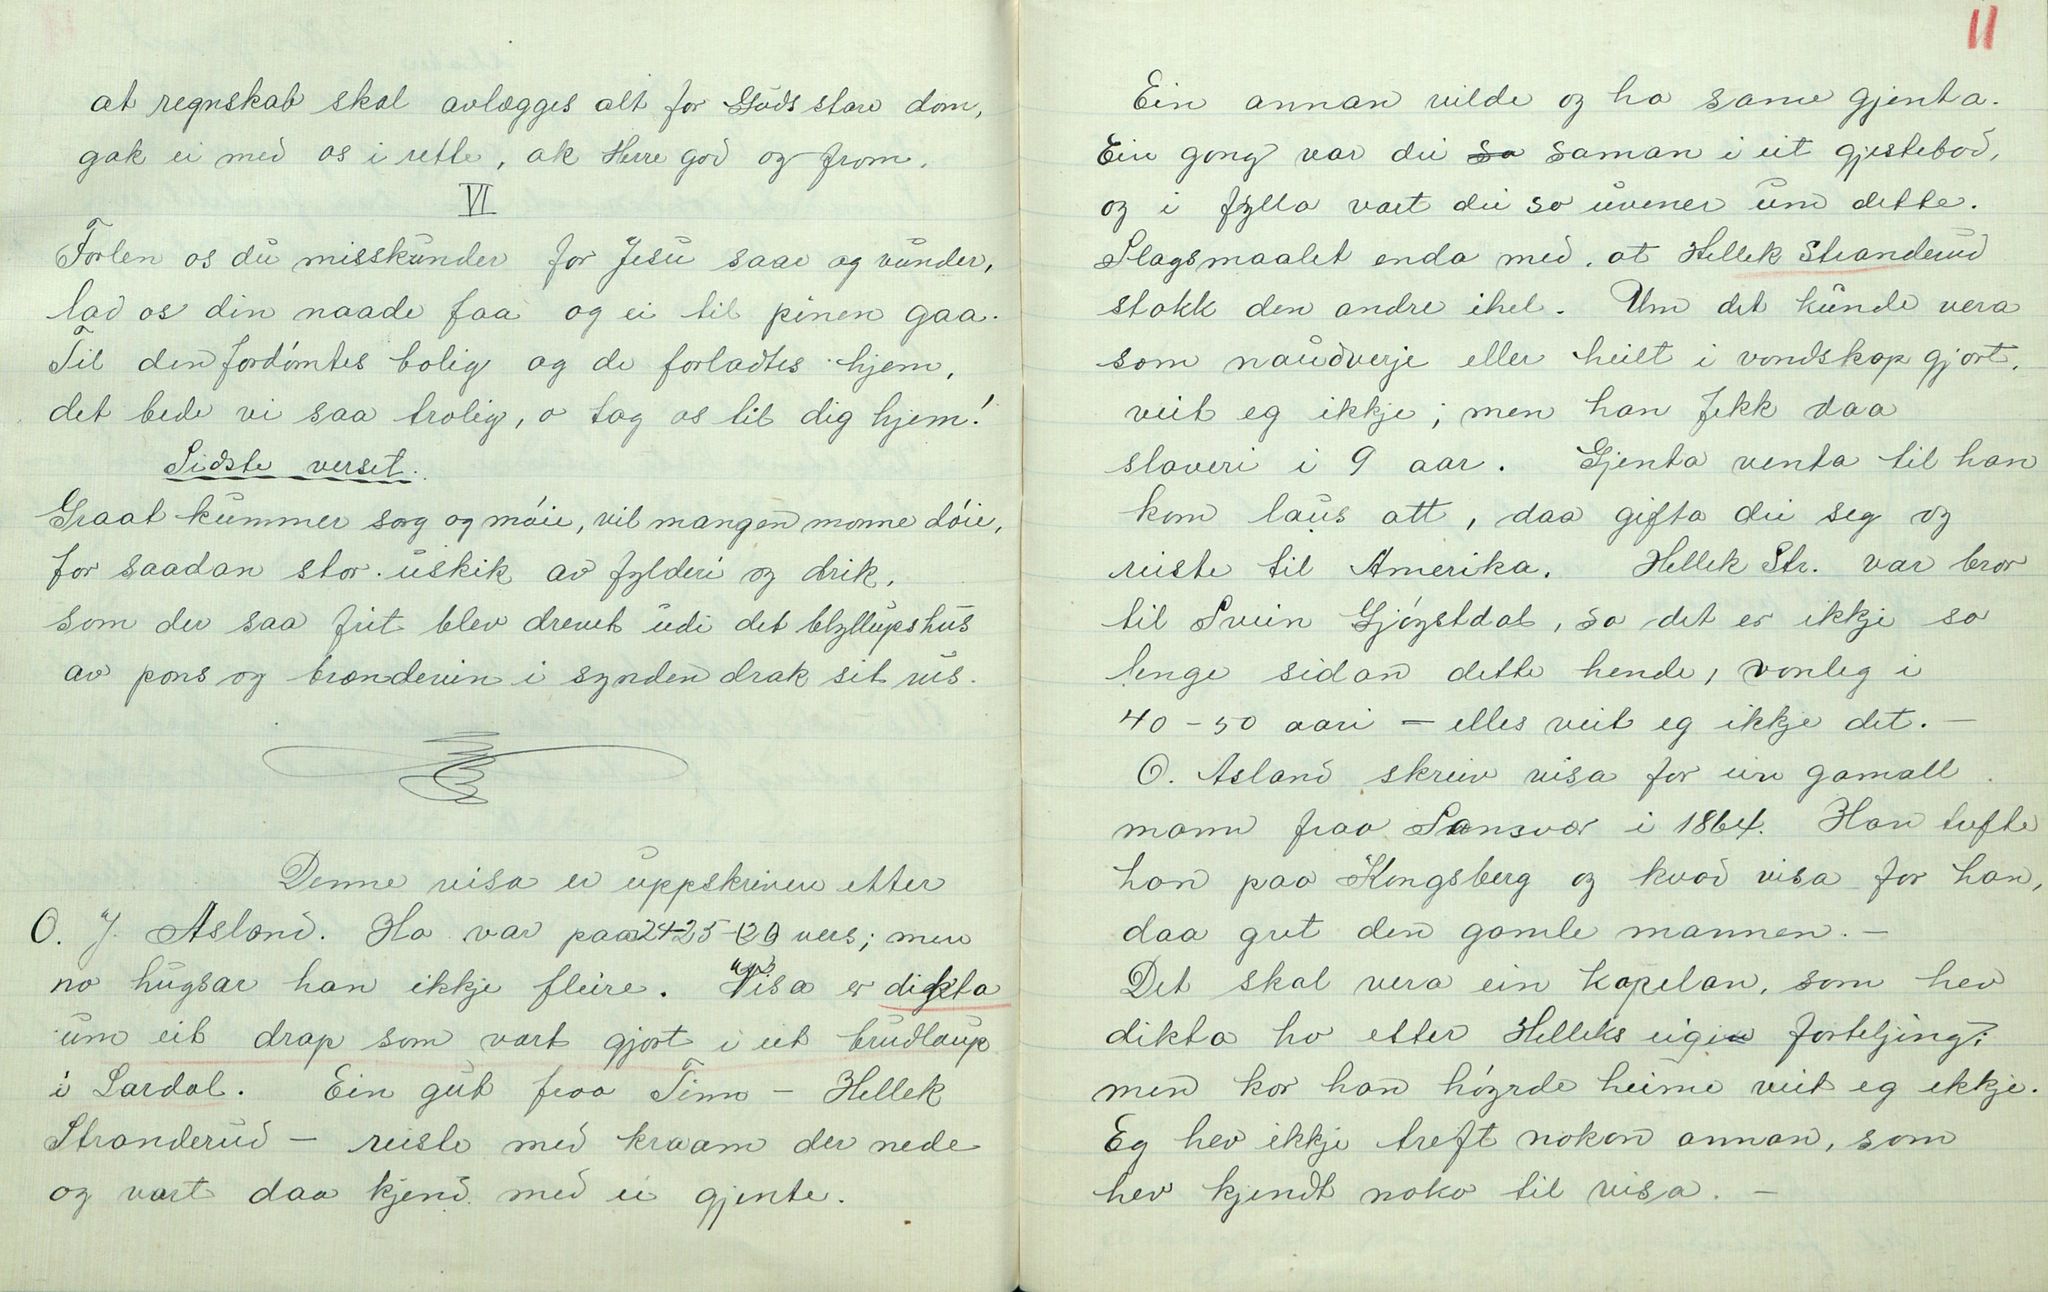 at regnskab skal avlægges alt for Guds store dom,
gak ei med os i rette, ak Herre god og from.
VI
Forlen os du misskunder for Jesu saar og vunder,
lad os din naade faa og ei til pinen gaa.
Til den fordömtes bolig og de forladtes hjem,
det bede vi saa trolig, o tag os til dig hjem!
Sidste verset.
Graat kummer sorg og möie, vil mangen monne döie,
for saadan stor uskik av fylderi og drik,
som der saa frit blev drevet udi det bryllupshus
av pons og brændevin i synden drak sit rus.
Denne visa er uppskriven etter
O. J. Asland. Ho var paa 24-25 vers; men
no hugsar han ikkje fleire. Visa er dikta
um eit drap som vart gjort i eit brudlaup
i Sardal. Ein gut fraa Tinn - Hellek
Stranderud - reiste med kraam der nede
og vart daa kjend med ei gjente.
11
Ein annan vilde og ha same gjenta.
Ein gong var dei so saman i eit gjestebod,
og i fylla vart dei so uvener um dette.
Slagsmaalet enda med, at Hellek Stranderud
stakk den andre ihel. Um det kunde vera
som naudverje eller heilt i vondskap gjort,
veit eg ikkje; men han fekk daa
slaveri i 9 aar. Gjenta venta til han
kom laus att, daa gifta dei seg og
reiste til Amerika. Hellek Str. var bror
til Svein Gjöystdal, so det er ikkje so
lenge sidan dette hende, vonleg i
40-50 aari - elles veit eg ikkje det. -
O. Asland skreiv visa for ein gamall
mann fraa Sansvær i 1864. Han tufte
han paa Kongsberg og kvad visa for han,
daa gret den gamle mannen. -
Det skal vera ein kapelan, som hev
dikta ho etter Helleks eigi forteljing;
men kor han höyrde heime veit eg ikkje.
Eg hev ikkje treft nokon annan, som
hev kjendt noko til visa. -